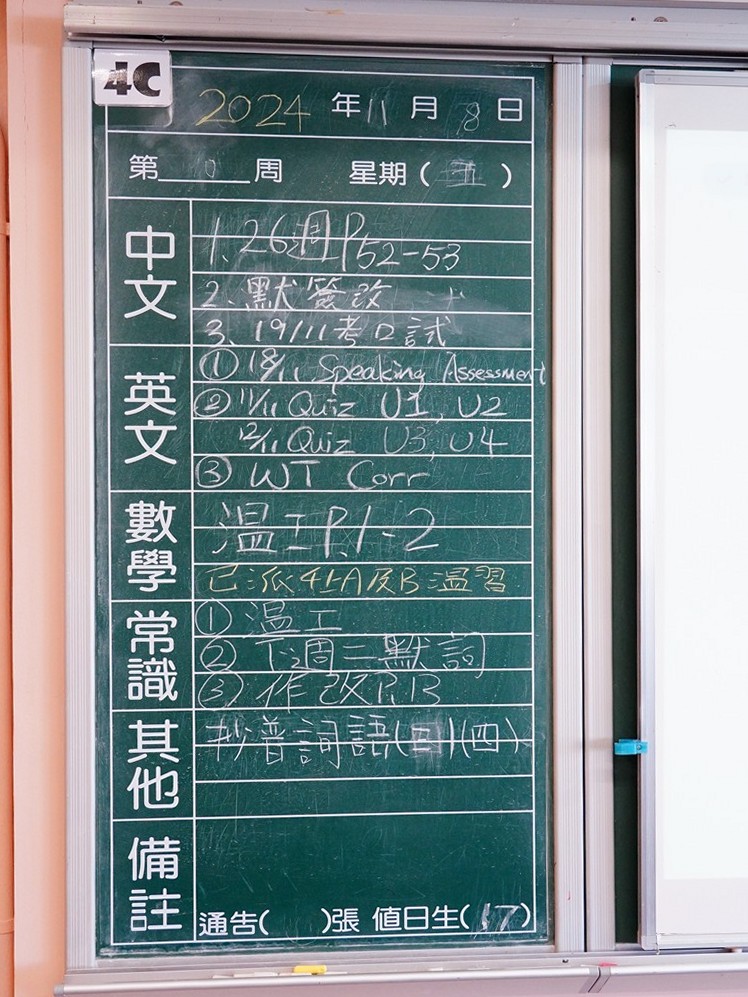 4C
2024 年 11 月 8 日
第 周 星期 ( 五 )
中文
1. 26週P52-53
2. 默簽改
3. 19/11考口試
英文
① 18/11 Speaking Assessment
② 11/11 Quiz U1, U2
12/11 Quiz U3, U4
③ WT Corr
數學
溫工P.1-2
已派4上A及B溫習
常識
① 溫工
② 下週二默詞
③ 作改P.13
其他
抄普詞語(三)(四)
備註
通告( )張 值日生(17)